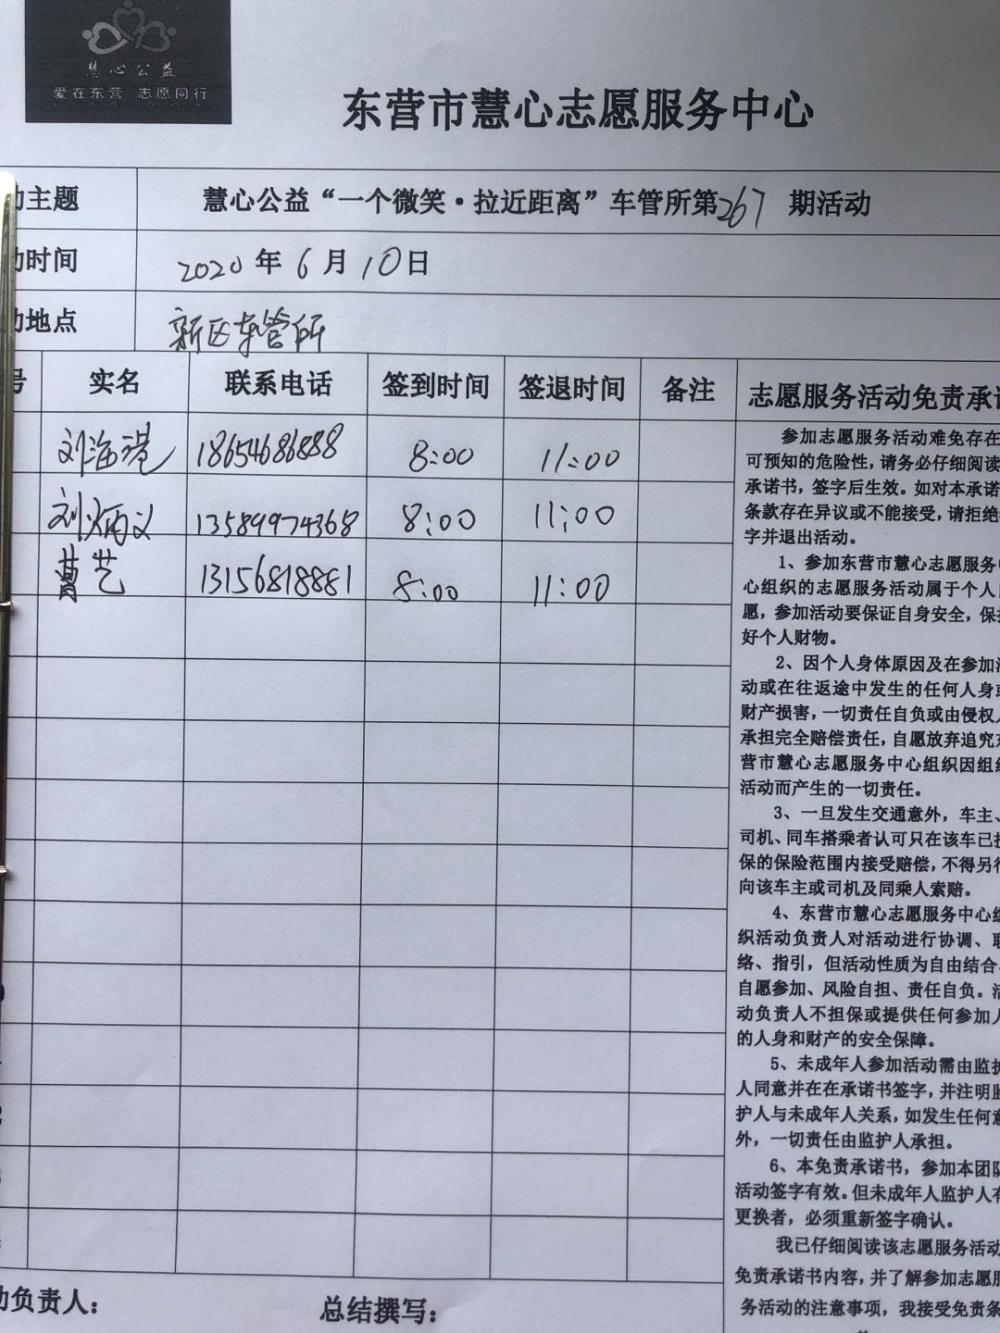 慧心公益
爱在东营 志愿同行
东营市慧心志愿服务中心
动主题 慧心公益“一个微笑·拉近距离”车管所第267期活动
动时间 2020年6月10日
动地点 新区车管所
号 实名 联系电话 签到时间 签退时间 备注
刘海港 18654686888 8:00 11:00
刘炳义 13589974368 8:00 11:00
曹艺 13156818881 8:00 11:00
志愿服务活动免责承诺
参加志愿服务活动难免存在
可预知的危险性，请务必仔细阅读
承诺书，签字后生效。如对本承诺
条款存在异议或不能接受，请拒绝
字并退出活动。
1、参加东营市慧心志愿服务中
心组织的志愿服务活动属于个人自
愿，参加活动要保证自身安全，保护
好个人财物。
2、因个人身体原因及在参加活
动或在往返途中发生的任何人身或
财产损害，一切责任自负或由侵权人
承担完全赔偿责任，自愿放弃追究东
营市慧心志愿服务中心组织因组织
活动而产生的一切责任。
3、一旦发生交通意外，车主、
司机、同车搭乘者认可只在该车已投
保的保险范围内接受赔偿，不得另行
向该车主或司机及同乘人索赔。
4、东营市慧心志愿服务中心组
织活动负责人对活动进行协调、联
络、指引，但活动性质为自由结合、
自愿参加、风险自担、责任自负。活
动负责人不担保或提供任何参加人
的人身和财产的安全保障。
5、未成年人参加活动需由监护
人同意并在在承诺书签字，并注明监
护人与未成年人关系，如发生任何意
外，一切责任由监护人承担。
6、本免责承诺书，参加本团队
活动签字有效。但未成年人监护人有
更换者，必须重新签字确认。
我已仔细阅读该志愿服务活动
免责承诺书内容，并了解参加志愿服
务活动的注意事项，我接受免责条
动负责人： 总结撰写：